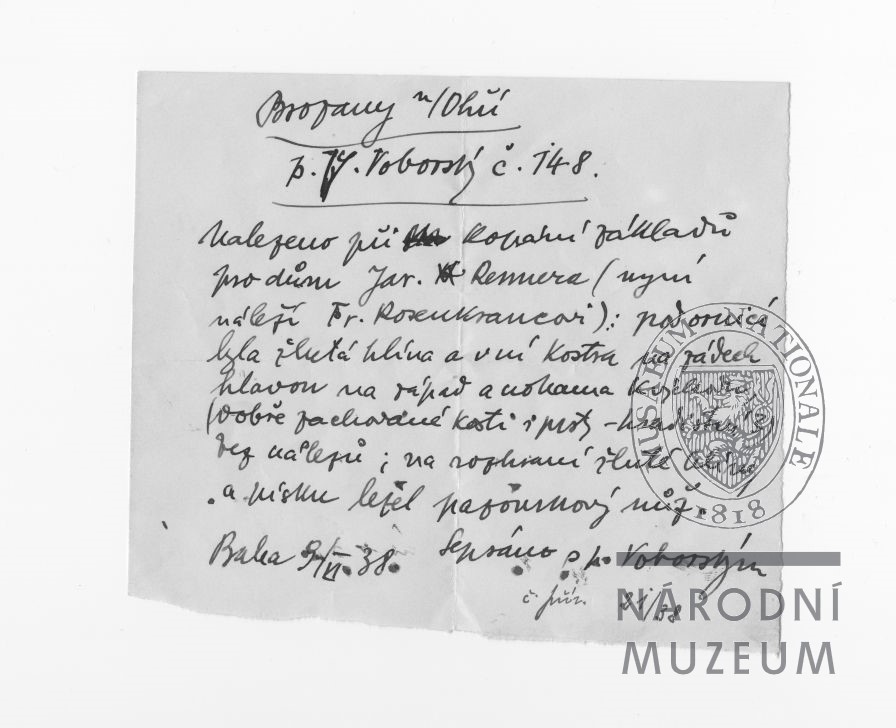 Brozany n/Ohří
p. Voborský č. 148.
Nalezeno při kopání základů
pro dům Jar. Rennera (nyní
náleží Fr. Rosenkrancovi): pod ornicí
byla žlutá hlína a v ní kostra na zádech
hlavou na západ a nohama k východu
(dobře zachované kosti i prsty – hradištní?)
bez nálezů; na rozhraní žluté hlíny
a písku ležel pazourkový nůž.
Baba 9/VI. 38. Sepsáno s p. Voborským
č. přír. 21/38
MUSEUM NATIONALE
1818
NÁRODNÍ
MUZEUM